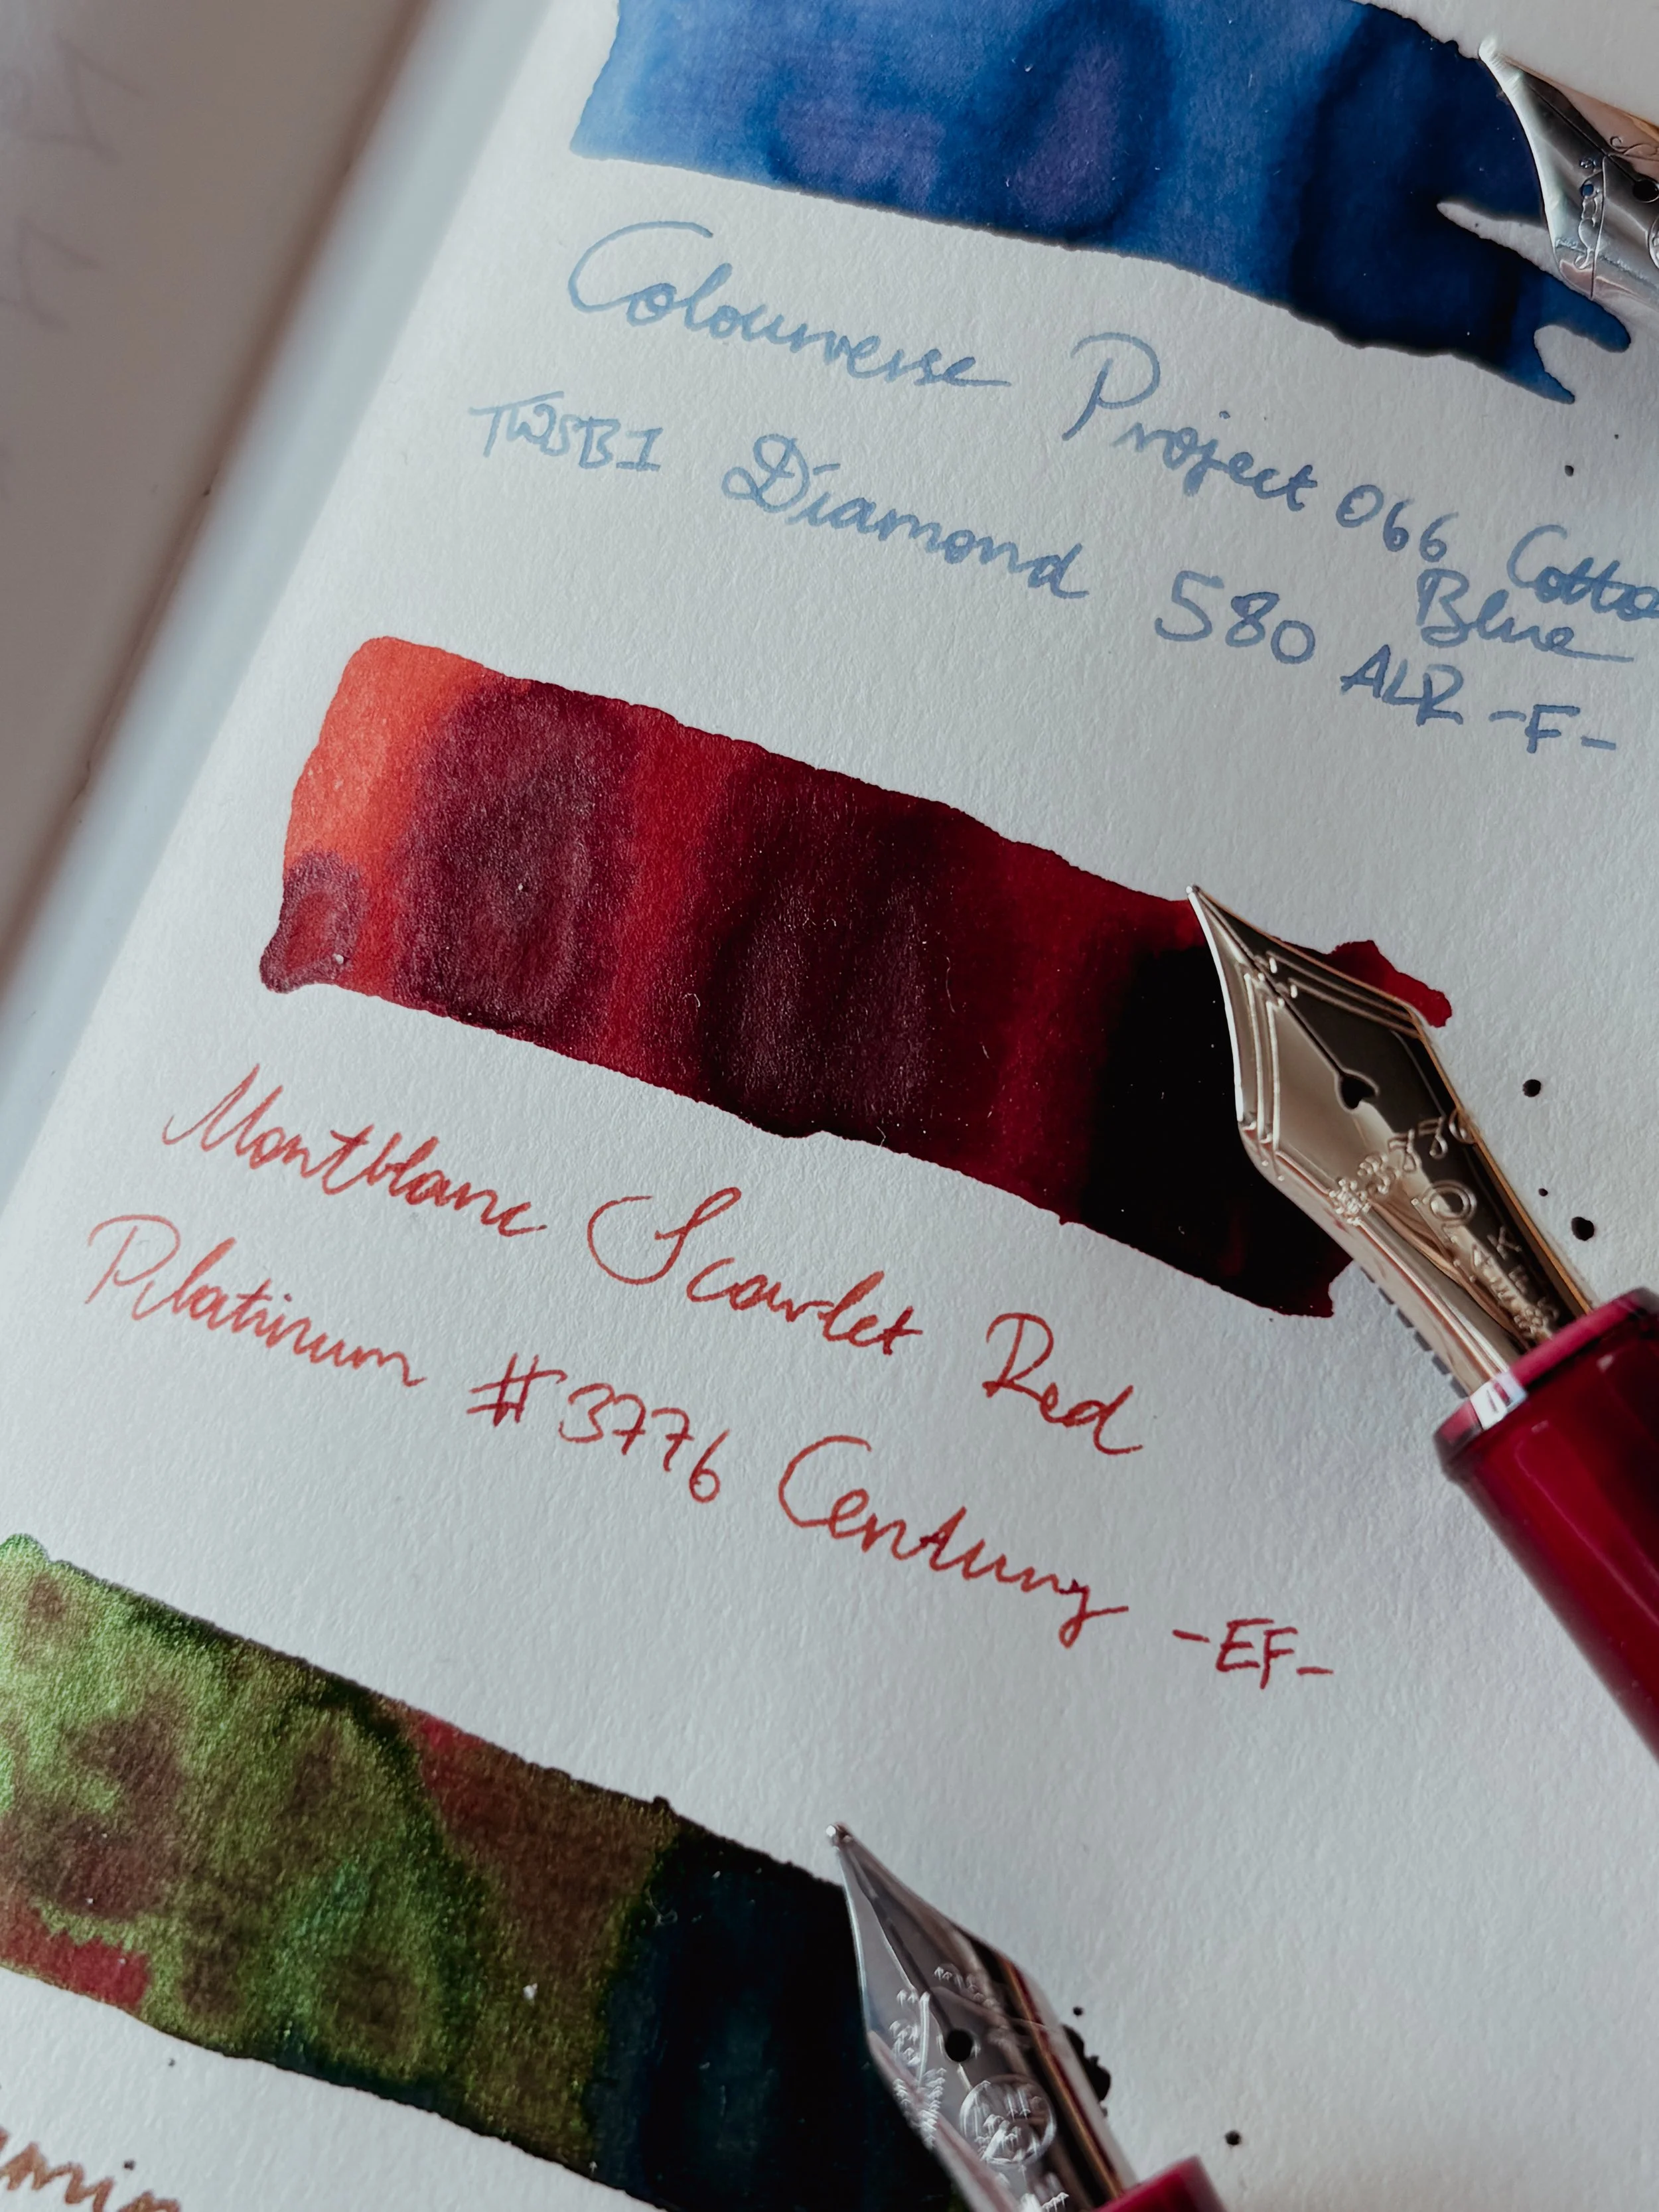 Colourverse Project 066 Cotto
Blue
TWSBI Diamond 580 ALR -F-
Montblanc Scarlet Red
Platinum #3776 Century -EF-